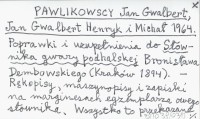 PAWLIKOWSCY Jan Gwalbert,
Jan Gwalbert Henryk i Michał 1964.
Poprawki i uzupełnienia do Słow-
nika gwary podhalskiej Bronisława
Dembowskiego (Kraków 1894). —
Rękopisy, maszynopisy i zapiski
na marginesach egzemplarza owego
słownika. Wszystko to przekazane